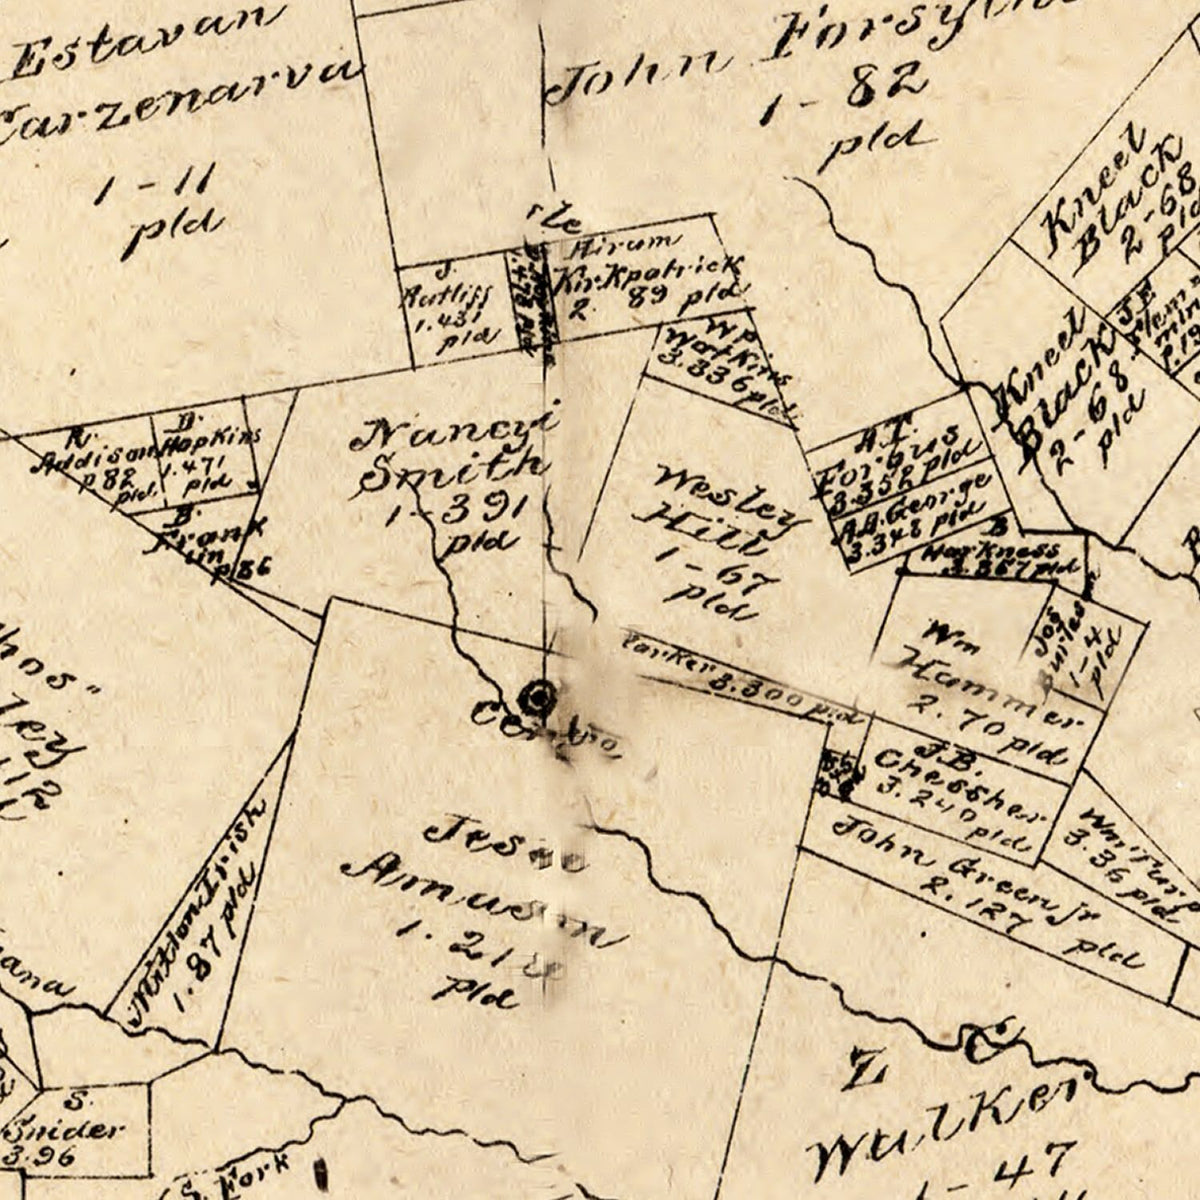 Estavan
Carzenarva
1-11
pld
John Forsythe
1-82
pld
Kneel
Black
2-68
pld
Hirum
KirKpatrick
2. 89 pld
J.
Rutliff
1.431
pld
1.478 pld
W P
Watkins
3.336 pld
Kneel
Black
2-68
pld
R.
Addison
p 82
pld.
D.
Hopkins
1.471
pld
B.
Frank
lin
p 86
Nancyi
Smith
1-391
pld
Wesley
Hill
1-67
pld
A.T.
Forbus
3.352 pld
A.A. George
3.348 pld
B
Harkness
3.367 pld
Wm
Hammer
2.70 pld
Jos
1-4
pld
Parker 3.300 pld
J.B.
Chessher
3.240
pld
Wm Turp
3.36 pld
John Green jr
2.127 pld
Jesee
Amuson
1.21
pld
Milton Irish
1.87 pld
Z C
Walker
1-47
S.
Snider
3.96
S. Fork